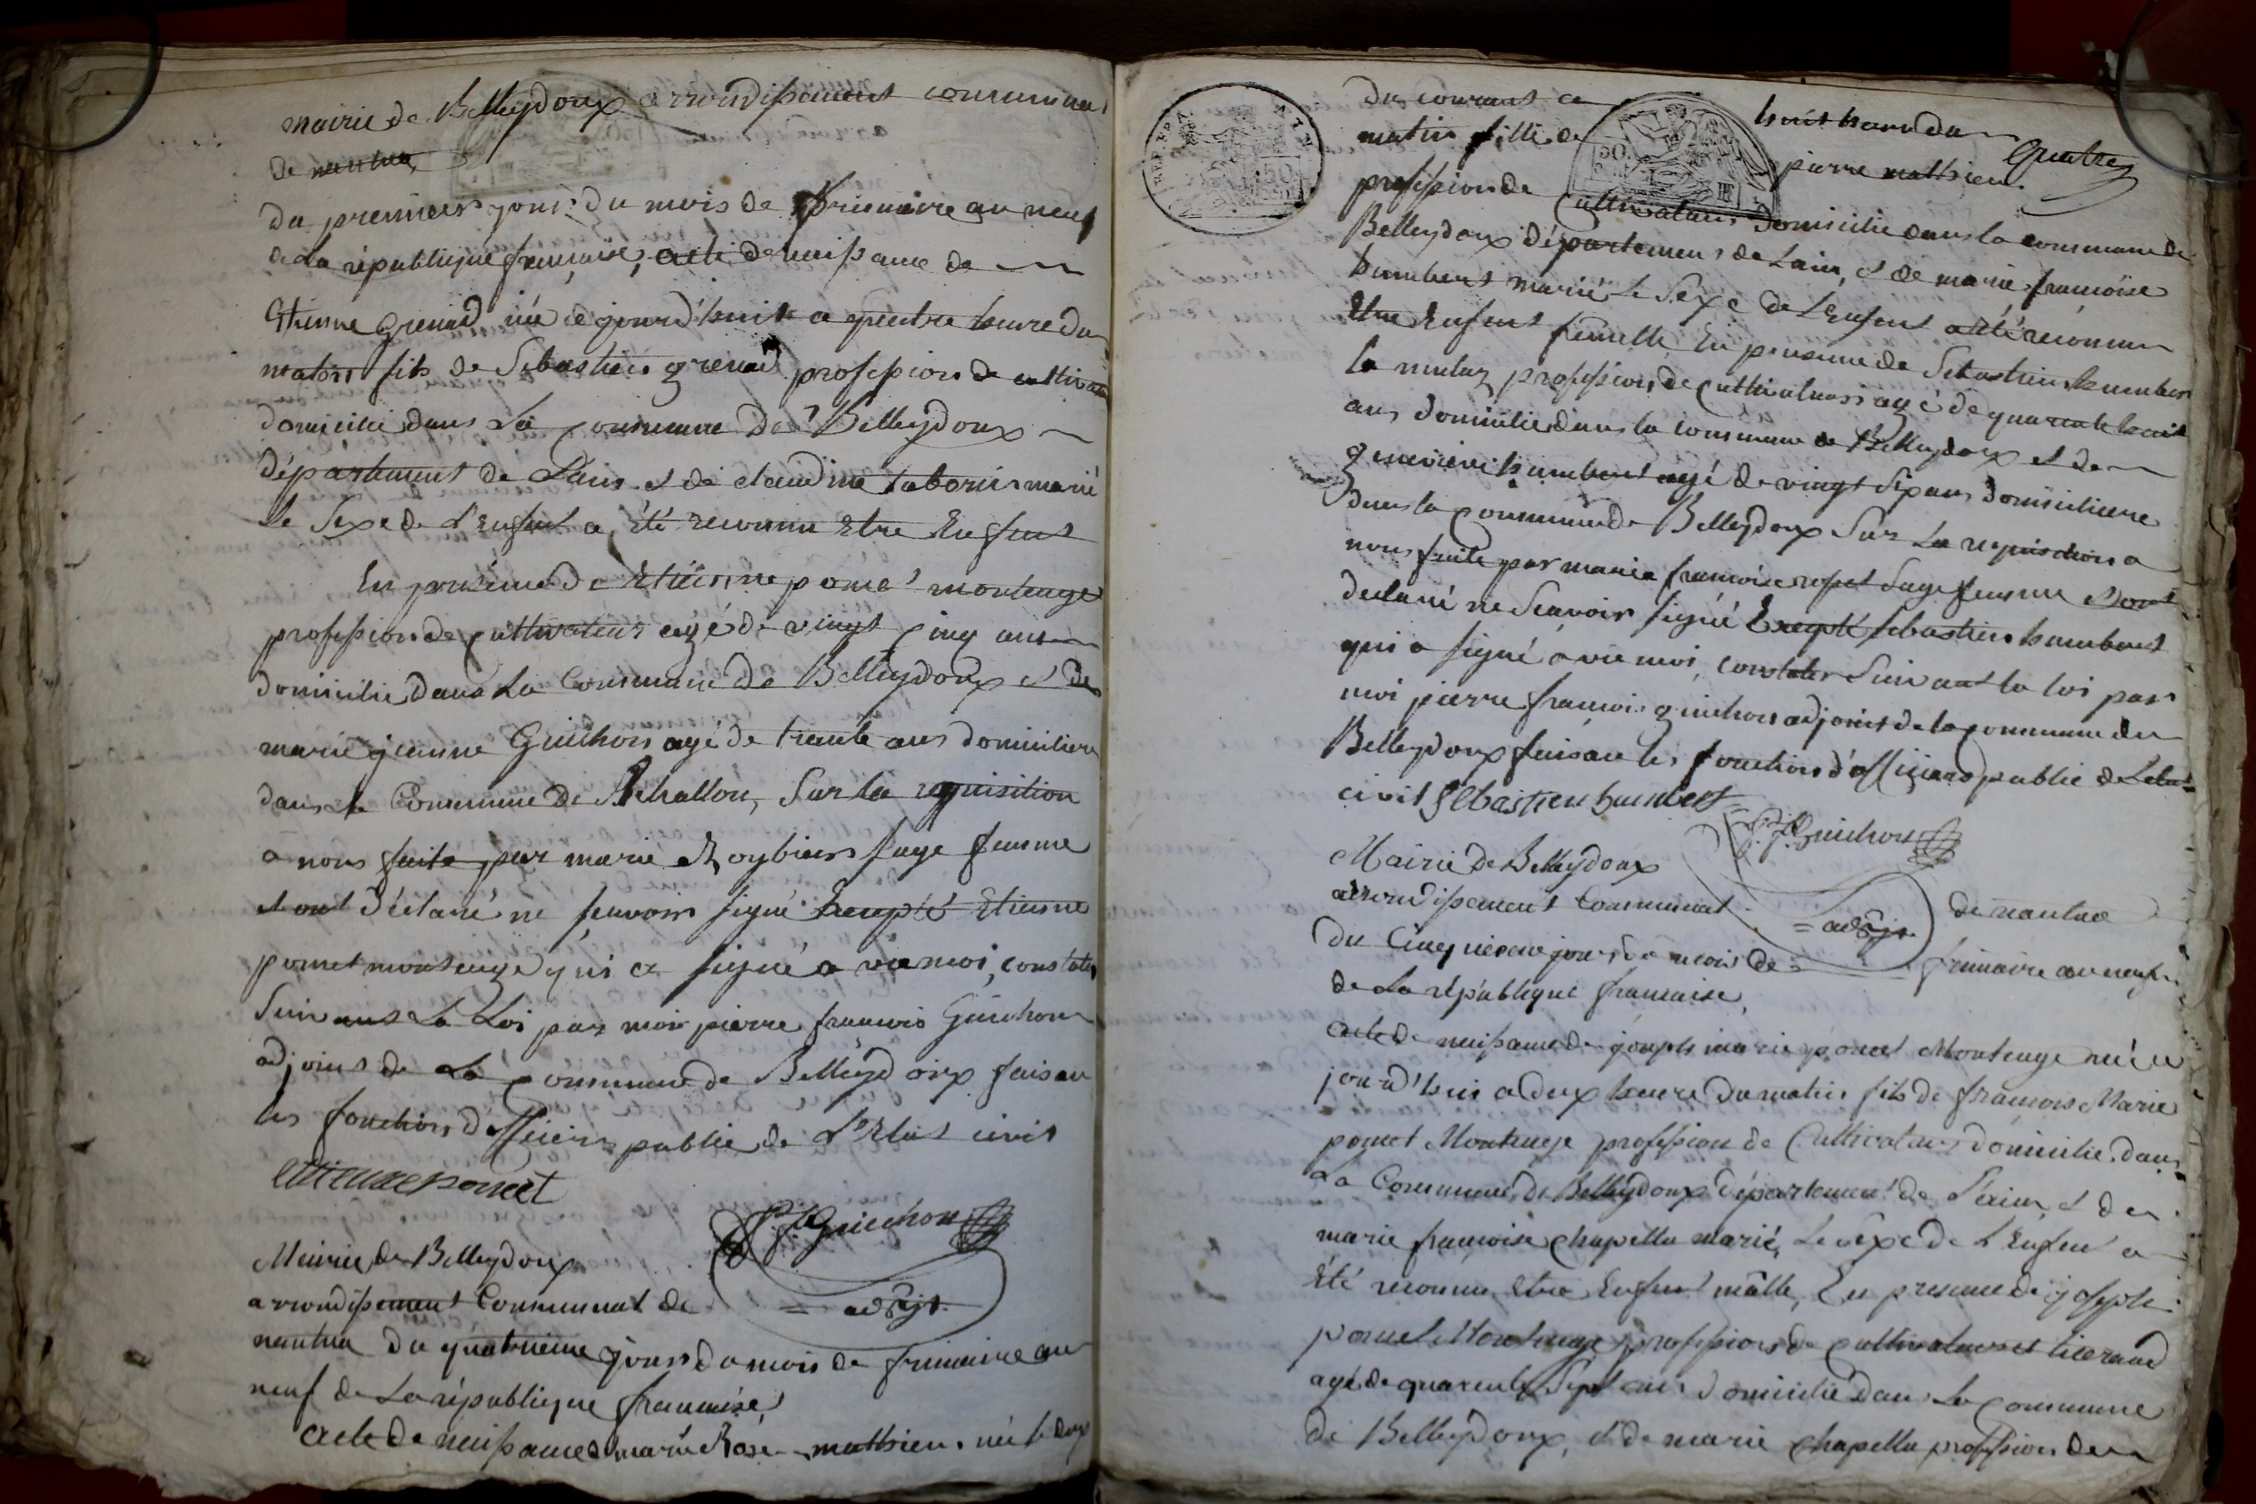 mairie de Belleydoux arrondissement communal
de nantua
du premier jour du mois de frimaire an neuf
de la république française, acte de naissance de
Etienne grenard née ce jourd'huit a quatre heure du
matin fils de Sébastien grenard profession de cultivateur
domicilié dans la Commune de Belleydoux
département de Lain et de claudine tabourin marié
le sexe de l'enfant a été reconnu Etre Enfant
En présence de Etienne poncet montange
profession de cultivateur agé de vingt cinq ans
domicilié dans la Commune de Belleydoux et de
marie jeanne Guichon agé de trente ans domiciliere
dans la Commune de Echallon, Sur la requisition
a nous faite par marie Roybier sage femme
et ont déclaré ne scavoir signé Excepté Etienne
poncet montange qui a signé avec moi, constater
Suivant La Loi par moi pierre francois Guichon
adjoint de La Commune de Belleydoux faisan
les fonction d'officier public de L'Etat civil
ettienne poncet
P. f. Guichon
adjt.
Mairie de Belleydoux
arrondissement Communal de
nantua du quatrieme jour du mois de frimaire an
neuf de La république francaise
acte de naissance de marie Rose mathieu née le deux
du courant a huit heure du
matin fille de pierre mathieu
profession de Cultivateur domicilié dans la commune de
Belleydoux département de Lain, et de marie françoise
humbert marié Le Sexe de L'Enfant a été reconnu
Etre Enfant femelle En présence de Sebastien humbert
la mulaz profession de Cultivateur agé de quarante huit
ans domicilié dans la commune de Belleydoux et de
genevieve humbert agé de vingt six ans domiciliere
dans la Commune de Belleydoux Sur La requisition a
nous faite par marie francoise sage femme et ont
declaré ne Scavoir signé Excepté sebastien humbert
qui a signé avec moi, constater suivant la loi par
moi pierre francois guichon adjoint de la commune de
Belleydoux faisan les fonction d'officier public de Letat
civil sebastien humbert
P. f. Guichon
adjt.
Mairie de Belleydoux
arrondissement Communal de nantua
Du Cinquieme jour du mois de frimaire an neuf
de La république francaise,
acte de naissance de joseph marie poncet Montange née ce
jourd'hui a deux heure du matin fils de francois Marie
poncet Montange profession de Cultivateur domicilié dans
La Commune de Belleydoux département de L'ain, et de
marie francoise chapellu marié, Le sexe de L'Enfant a
été reconnu Etre Enfant mâlle, En presence de joseph
poncet Montange profession de cultivateur et
agé de quarente Sept ans domicilié dans La Commune
de Belleydoux, et de marie chapellu profession de